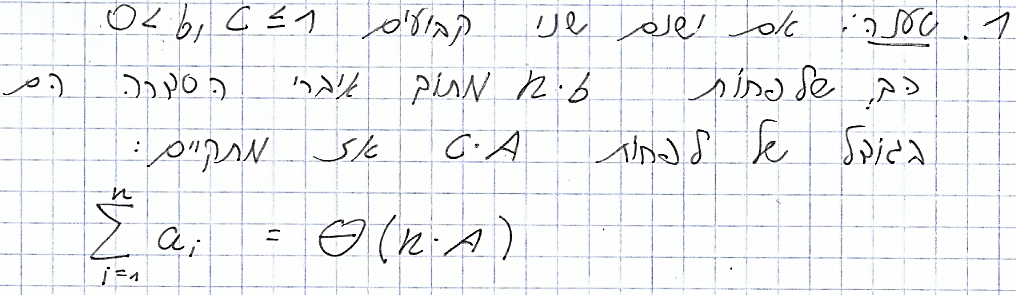 1. טענה: אם ישנם שני קבועים 0 < b, c ≤ 1
כך שלפחות n·b מתוך איברי הסדרה הם
בגודל של לפחות C·A אז מתקיים:
\sum_{i=1}^{n} a_i = Θ(n·A)